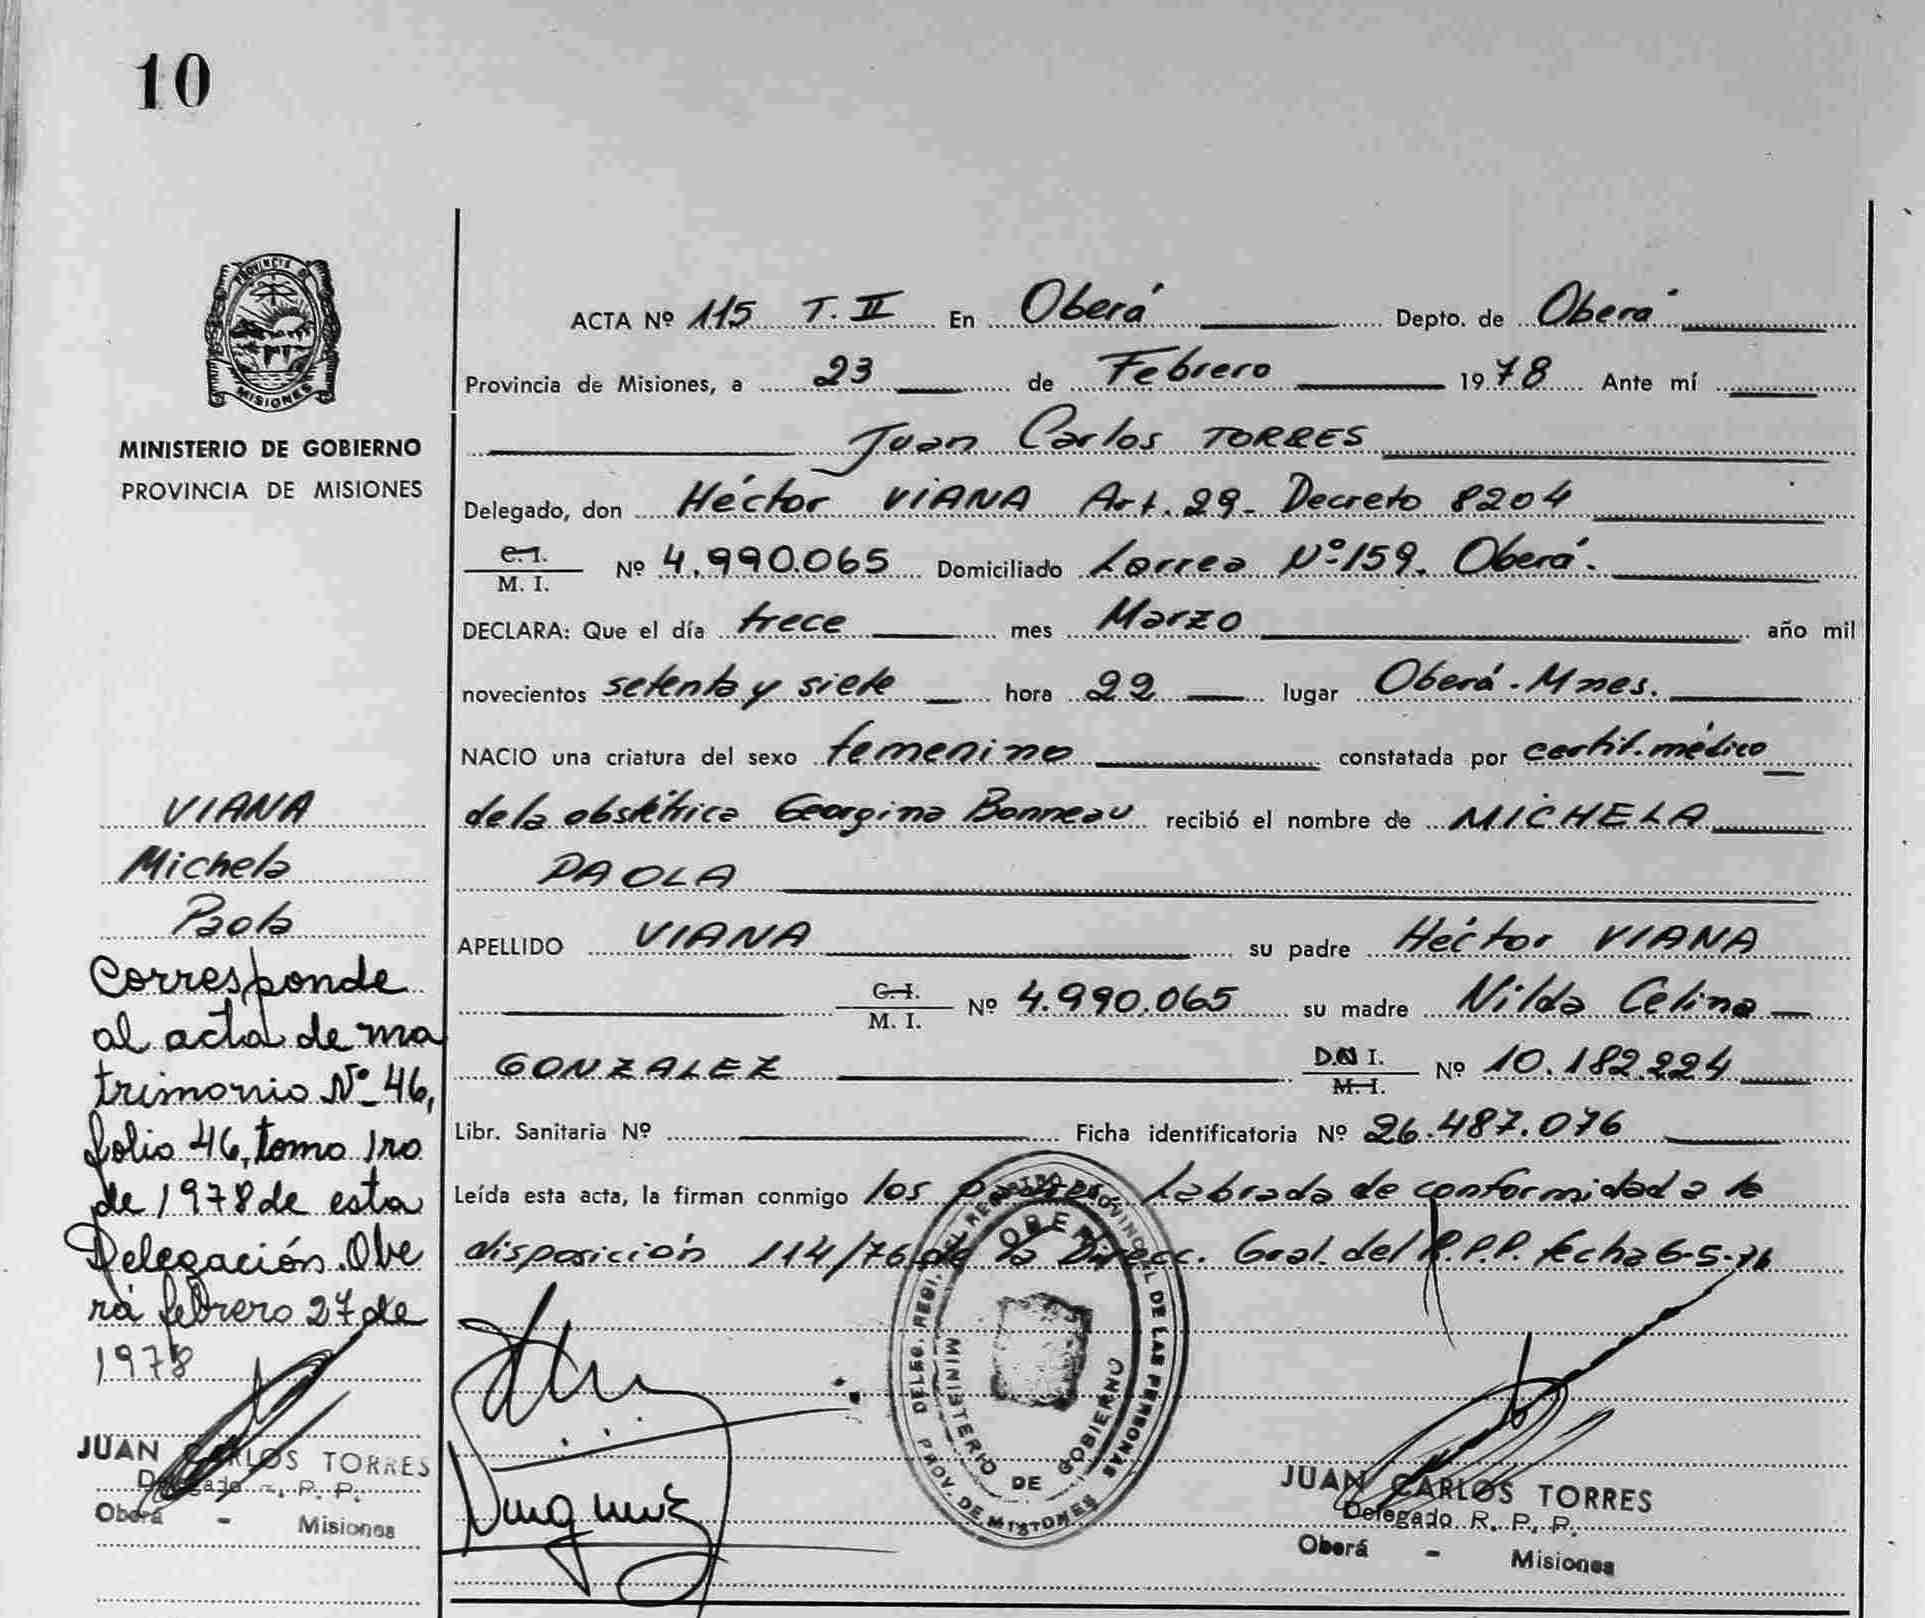 10
PROVINCIA DE
MISIONES
MINISTERIO DE GOBIERNO
PROVINCIA DE MISIONES
ACTA Nº 115 T. II En Oberá Depto. de Oberá
Provincia de Misiones, a 23 de Febrero 1978 Ante mí
Juan Carlos TORRES
Delegado, don Héctor VIANA Art. 29- Decreto 8204
C. I.
M. I. Nº 4.990.065 Domiciliado Larrea Nº 159. Oberá.
DECLARA: Que el día trece mes Marzo año mil
novecientos setenta y siete hora 22 lugar Oberá-Mnes.
NACIO una criatura del sexo femenino constatada por certif. médico
de la obstétrica Georgina Bonneau recibió el nombre de MICHELA
PAOLA
APELLIDO VIANA su padre Héctor VIANA
C. I.
M. I. Nº 4.990.065 su madre Nilda Celina
GONZALEZ D.N.I.
M. I. Nº 10.182.224
Libr. Sanitaria Nº Ficha identificatoria Nº 26.487.076
Leída esta acta, la firman conmigo los padres. Labrada de conformidad a la
disposición 114/76 de la Direcc. Gral. del R.P.P. fecha 6-5-76
VIANA
Michela
Paola
Corresponde
al acta de ma
trimonio Nº 46,
folio 46, tomo 1ro
de 1978 de esta
Delegación. Obe
rá febrero 27 de
1978
JUAN CARLOS TORRES
Delegado R. P. P.
Oberá - Misiones
MINISTERIO DE GOBIERNO
PROV. DE MISIONES
JUAN CARLOS TORRES
Delegado R. P. P.
Oberá - Misiones